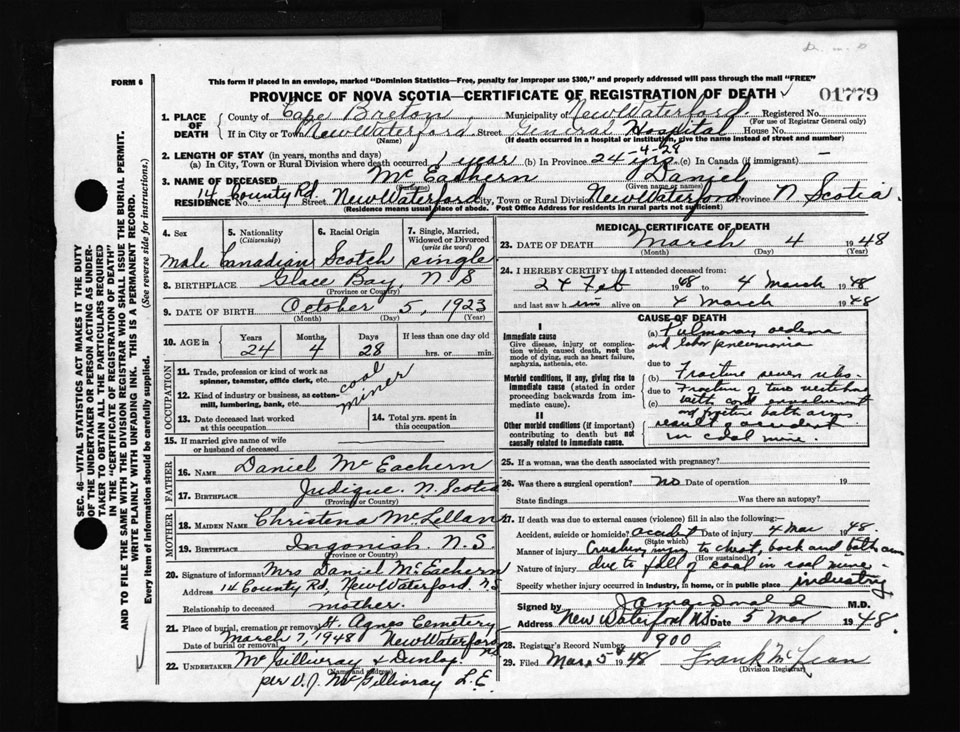 Dr. m. D
FORM 6
This form if placed in an envelope, marked "Dominion Statistics—Free, penalty for improper use $300," and properly addressed will pass through the mail "FREE"
PROVINCE OF NOVA SCOTIA—CERTIFICATE OF REGISTRATION OF DEATH
01779
1. PLACE OF DEATH
County of Cape Breton, Municipality of New Waterford Registered No.
(For use of Registrar General only)
If in City or Town New Waterford Street General Hospital House No.
(Name) (If death occurred in a hospital or institution, give the name instead of street and number)
2. LENGTH OF STAY (in years, months and days)
(a) In City, Town or Rural Division where death occurred 1 year (b) In Province 24 yrs -4-28 (c) In Canada (if immigrant) —
3. NAME OF DECEASED McEachern Daniel
(Surname) (Given name or names)
RESIDENCE No. 14 County Rd. Street New Waterford City, Town or Rural Division New Waterford Province N Scotia.
(Residence means usual place of abode. Post Office Address for residents in rural parts not sufficient)
4. Sex
Male
5. Nationality
(Citizenship)
Canadian
6. Racial Origin
Scotch
7. Single, Married, Widowed or Divorced
(write the word)
single
8. BIRTHPLACE Glace Bay, N S
(Province or Country)
9. DATE OF BIRTH October 5, 1923
(Month) (Day) (Year)
10. AGE in
Years Months Days If less than one day
24 4 28 hrs. or min.
OCCUPATION
11. Trade, profession or kind of work as spinner, teamster, office clerk, etc.
coal miner
12. Kind of industry or business, as cotton-mill, lumbering, bank, etc.
13. Date deceased last worked at this occupation
14. Total yrs. spent in this occupation
15. If married give name of wife or husband of deceased
FATHER
16. NAME Daniel McEachern
17. BIRTHPLACE Judique. N. Scotia
(Province or Country)
MOTHER
18. MAIDEN NAME Christena McLellan
19. BIRTHPLACE Ingonish. N.S.
(Province or Country)
20. Signature of informant Mrs Daniel McEachern
Address 14 County Rd, New Waterford. N.S
Relationship to deceased mother.
21. Place of burial, cremation or removal St. Agnes Cemetery
Date of burial or removal March 7, 1948 New Waterford NS
22. UNDERTAKER McGillivray & Dunlap.
(Name and address)
per D. J. McGillivray L.E.
MEDICAL CERTIFICATE OF DEATH
23. DATE OF DEATH March 4 1948
(Month) (Day) (Year)
24. I HEREBY CERTIFY that I attended deceased from:
24 Feb 1948 to 4 March 1948
and last saw him alive on 4 March 1948
CAUSE OF DEATH
I
Immediate cause
Give disease, injury or complication which caused death, not the mode of dying, such as heart failure, asphyxia, asthenia, etc.
(a) Pulmonary oedema
and lobar pneumonia
Morbid conditions, if any, giving rise to immediate cause (stated in order proceeding backwards from immediate cause).
due to
(b) Fracture seven ribs.
due to Fracture of two vertebrae
(c) with cord involvement
and fracture both arms
II
Other morbid conditions (if important) contributing to death but not causally related to immediate cause.
result of accident
in coal mine.
25. If a woman, was the death associated with pregnancy?
26. Was there a surgical operation? no Date of operation 19
State findings Was there an autopsy?
27. If death was due to external causes (violence) fill in also the following:
Accident, suicide or homicide? accident Date of injury 4 Mar 1948.
(State which)
Manner of injury Crushing injury to chest, back and both arms
(How sustained)
Nature of injury due to fall of coal in coal mine
Specify whether injury occurred in industry, in home, or in public place industry
Signed by M.D.
Address New Waterford NS Date 5 Mar 1948.
28. Registrar's Record Number 900
29. Filed Mar 5th 1948 Frank McLean
(Division Registrar)
SEC. 46—VITAL STATISTICS ACT MAKES IT THE DUTY OF THE UNDERTAKER OR PERSON ACTING AS UNDERTAKER TO OBTAIN ALL THE PARTICULARS REQUIRED IN THE "CERTIFICATE OF REGISTRATION OF DEATH" AND TO FILE THE SAME WITH THE DIVISION REGISTRAR WHO SHALL ISSUE THE BURIAL PERMIT.
WRITE PLAINLY WITH UNFADING INK. THIS IS A PERMANENT RECORD.
Every item of information should be carefully supplied. (See reverse side for instructions.)